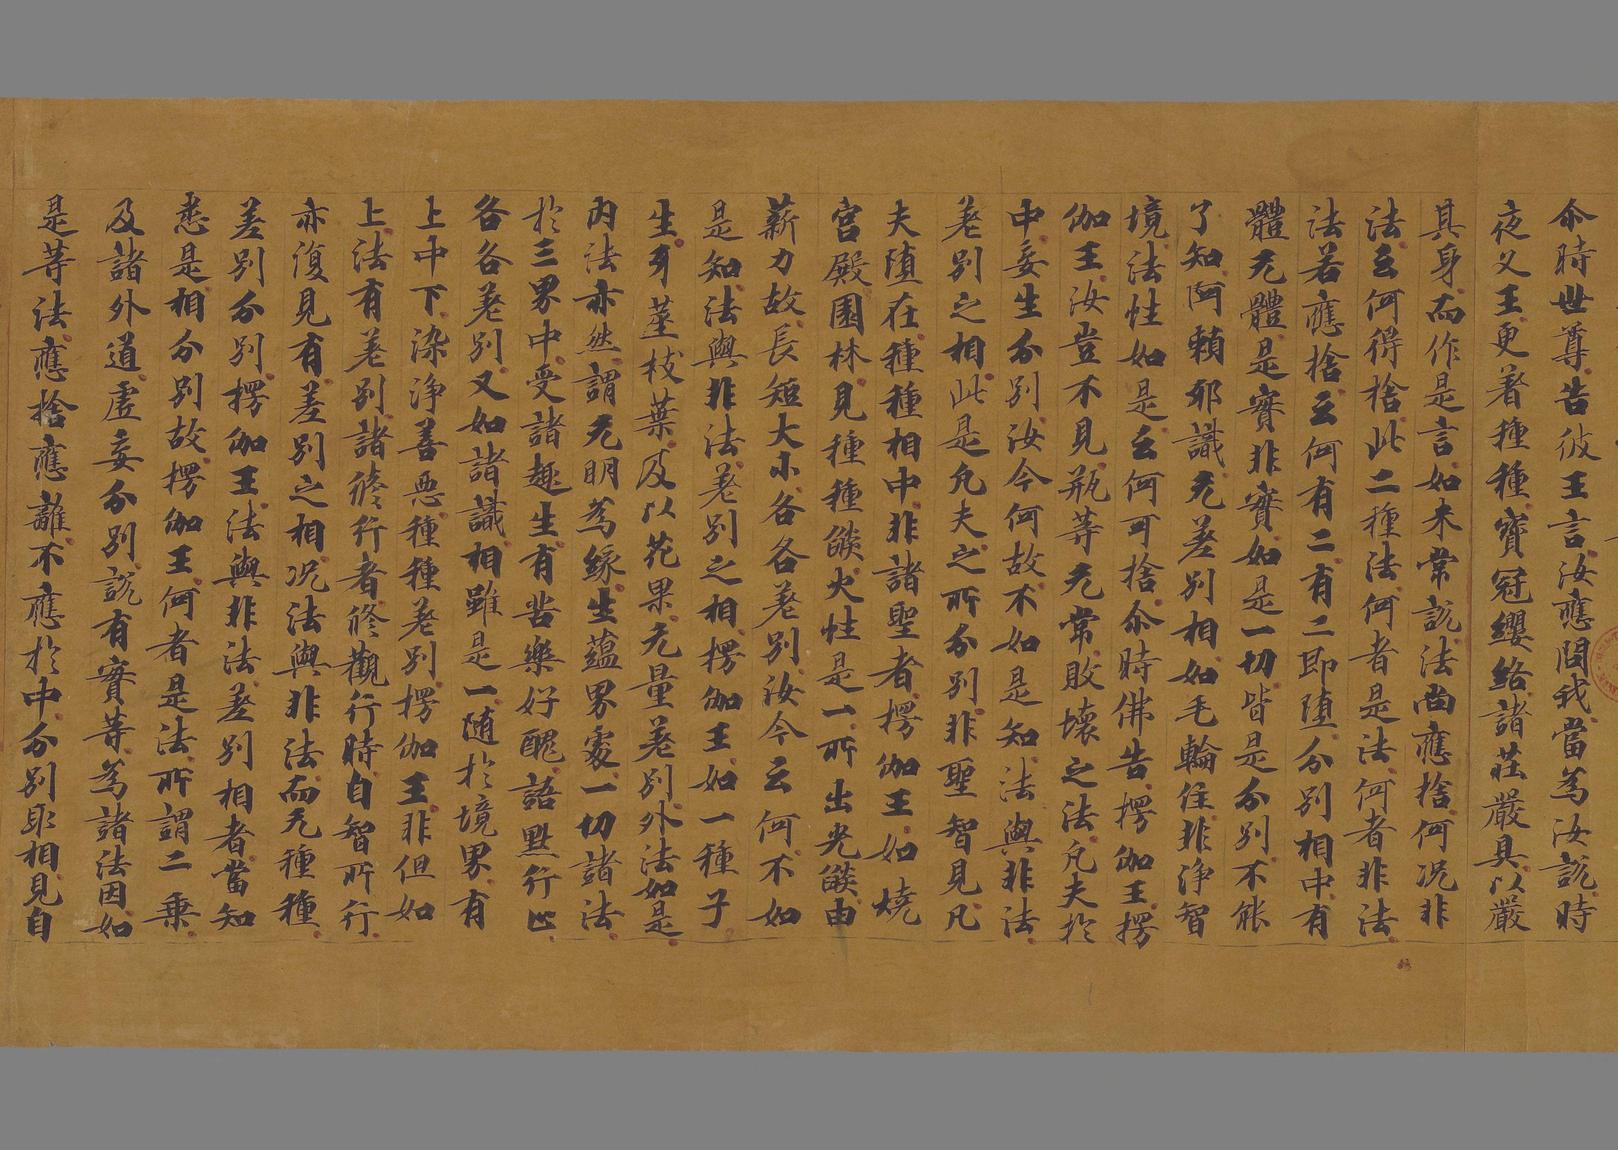 尒時世尊告彼王言汝應問我當為汝說時
夜叉王更著種種寶冠纓絡諸莊嚴具以嚴
其身而作是言如來常說法尚應捨何況非
法云何得捨此二種法何者是法何者非法
法若應捨云何有二有二即墮分別相中有
體无體是實非實如是一切皆是分別不能
了知阿頼耶識无差別相如毛輪住非淨智
境法性如是云何可捨尒時佛告楞伽王楞
伽王汝豈不見瓶等无常敗壞之法凡夫於
中妄生分別汝今何故不如是知法與非法
差別之相此是凡夫之所分別非聖智見凡
夫墮在種種相中非諸聖者楞伽王如燒
宮殿園林見種種燄火性是一所出光燄由
薪力故長短大小各各差別汝今云何不如
是知法與非法差別之相楞伽王如一種子
生牙莖枝葉及以花果无量差別外法如是
內法亦然謂无明為緣生蘊界處一切諸法
於三界中受諸趣生有苦樂好醜語默行止
各各差別又如諸識相雖是一随於境界有
上中下染淨善惡種種差別楞伽王非但如
上法有差別諸修行者修觀行時自智所行
亦復見有差別之相況法與非法而无種種
差別分別楞伽王法與非法差別相者當知
悉是相分別故楞伽王何者是法所謂二乗
及諸外道虛妄分別說有實等為諸法因如
是等法應捨應離不應於中分別取相見自